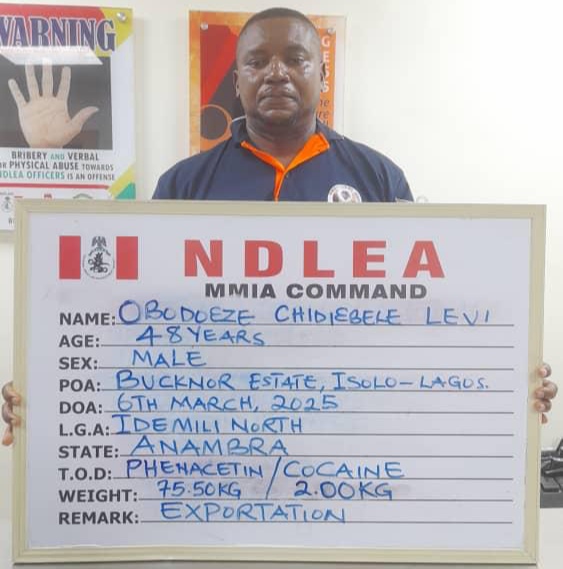 WARNING
BRIBERY AND VERBAL
OR PHYSICAL ABUSE TOWARDS
NDLEA OFFICERS IS AN OFFENSE
NDLEA
MMIA COMMAND
NAME: OBODOEZE CHIDIEBELE LEVI
AGE: 48 YEARS
SEX: MALE
POA: BUCKNOR ESTATE, ISOLO-LAGOS.
DOA: 6TH MARCH, 2025
L.G.A: IDEMILI NORTH
STATE: ANAMBRA
T.O.D: PHENACETIN/COCAINE
WEIGHT: 75.50KG / 2.00KG
REMARK: EXPORTATION